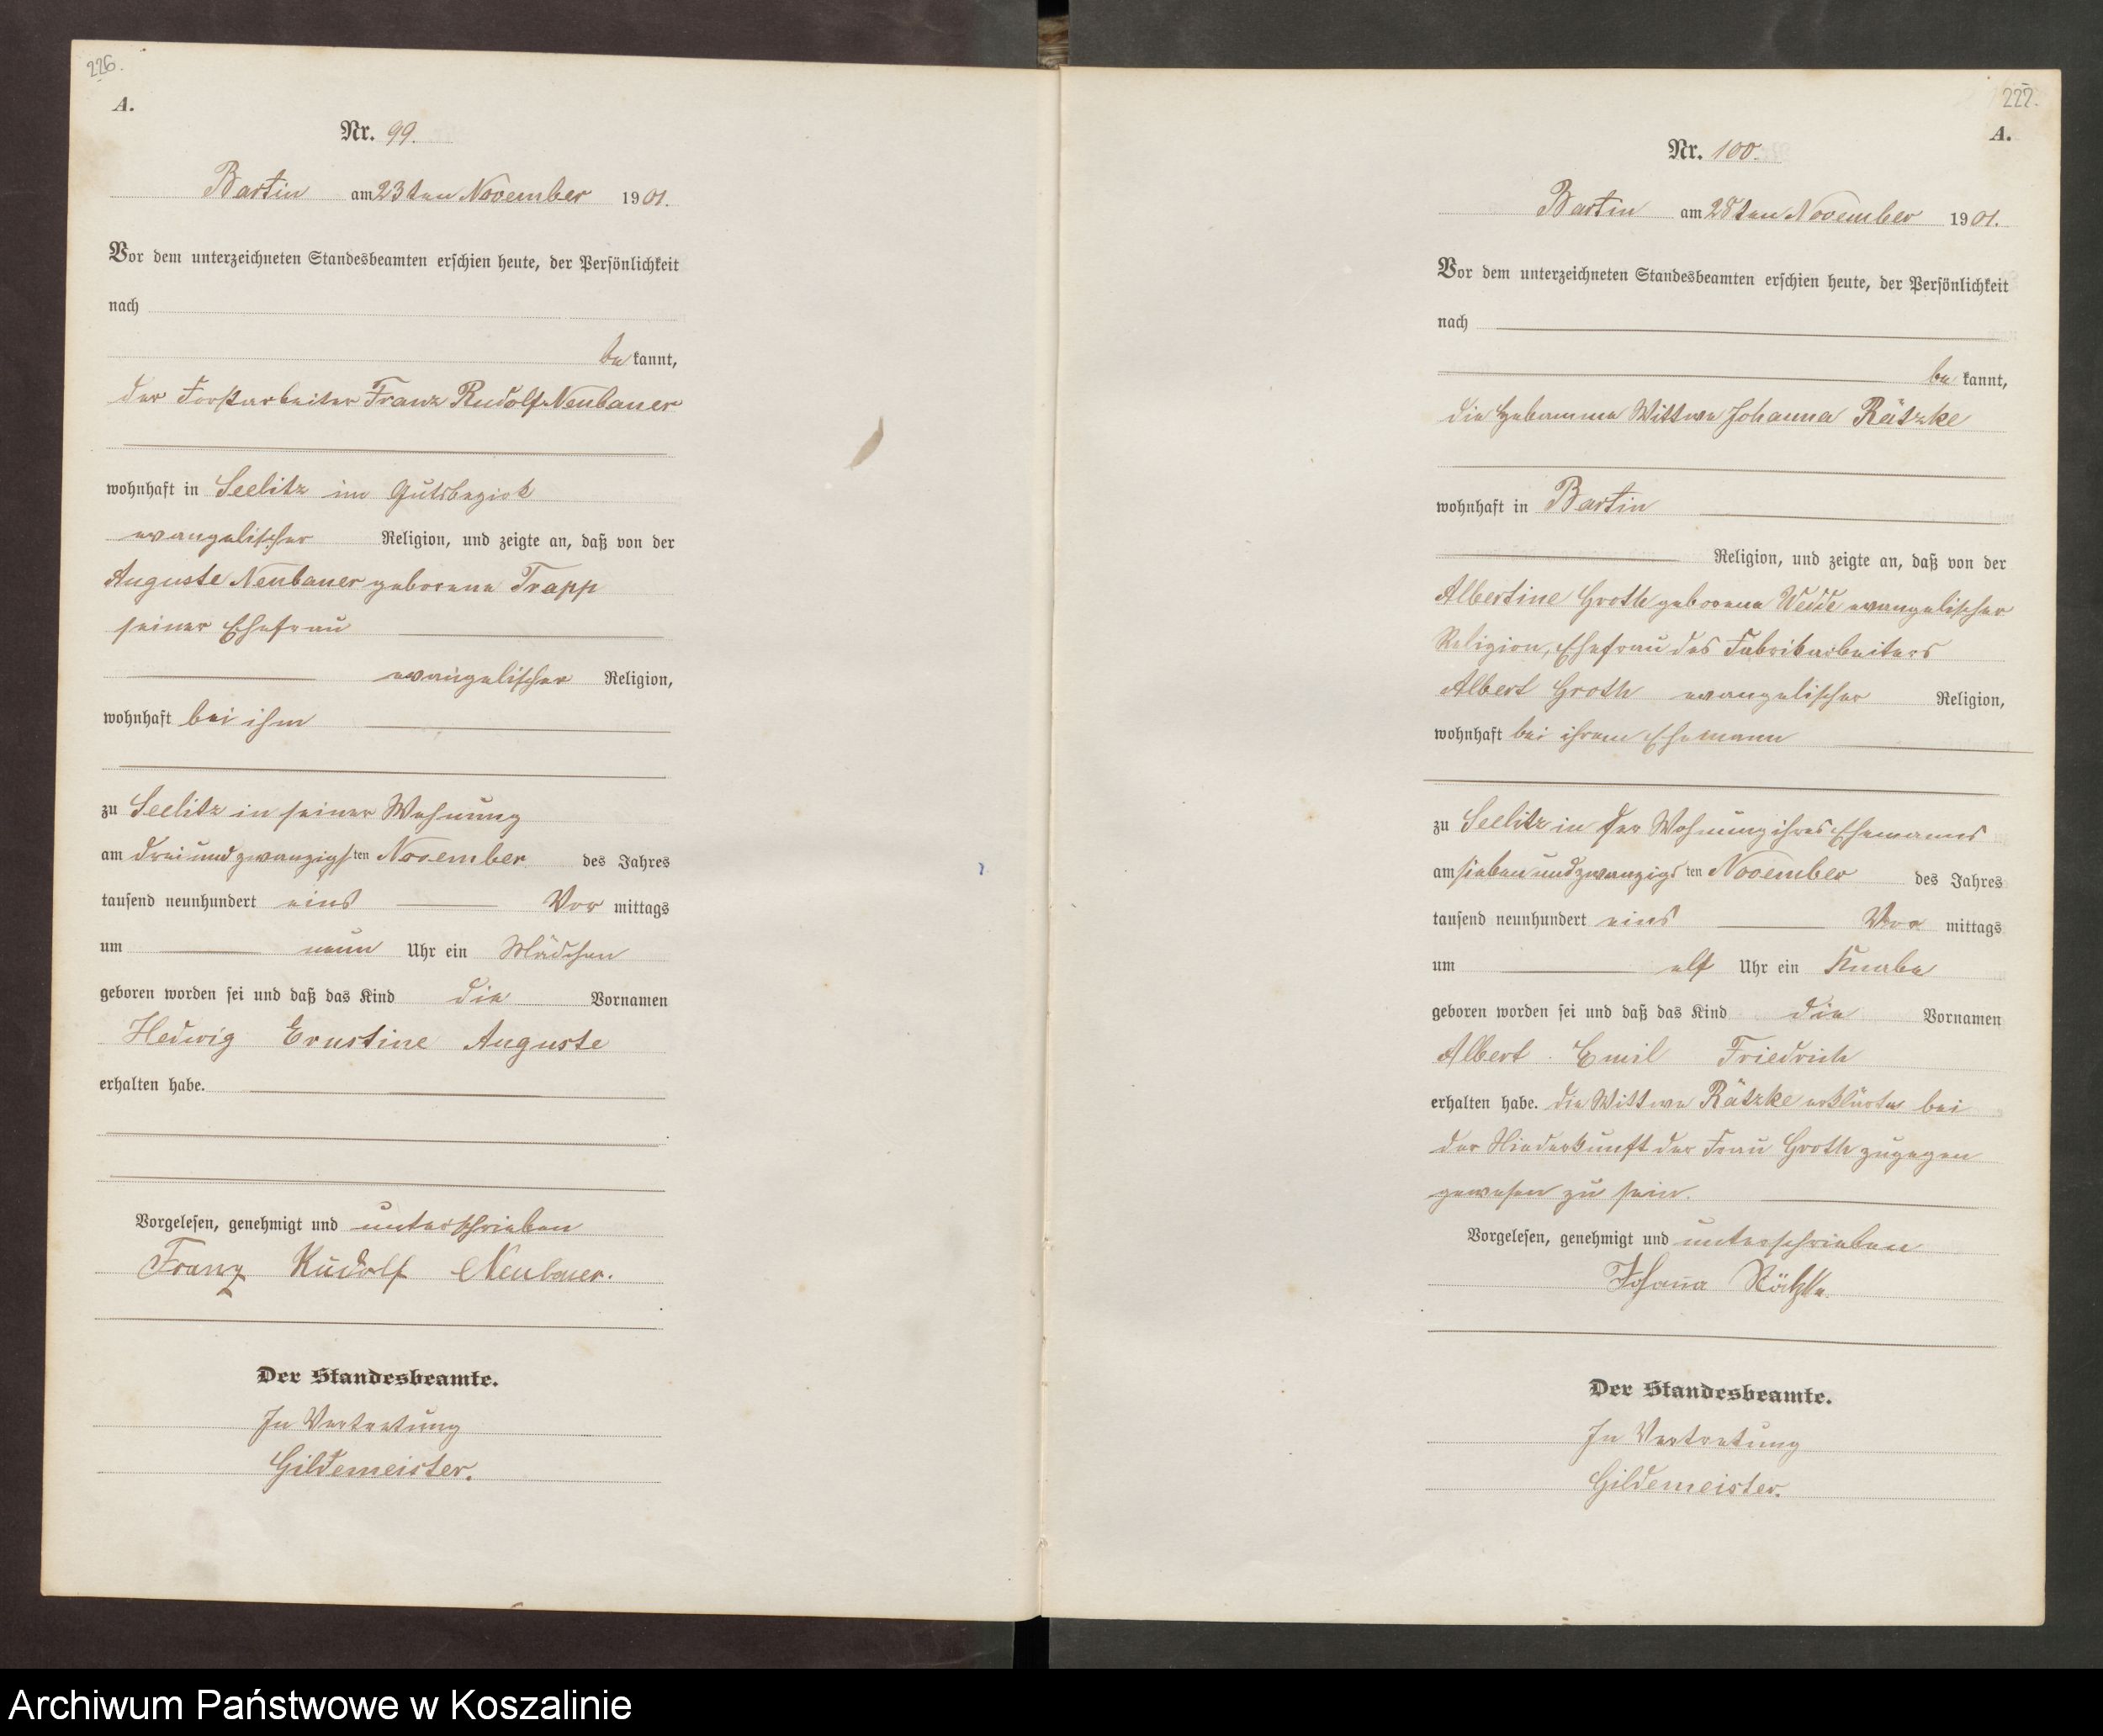 226.
A.
Nr. 99.
Bartin am 23ten November 1901.
Vor dem unterzeichneten Standesbeamten erschien heute, der Persönlichkeit
nach
be kannt,
der Forstarbeiter Franz Rudolf Neubauer
wohnhaft in Seelitz im Gutsbezirk
evangelischer Religion, und zeigte an, daß von der
Auguste Neubauer geborene Trapp
seiner Ehefrau
evangelischer Religion,
wohnhaft bei ihm
zu Seelitz in seiner Wohnung
am dreiundzwanzigsten November des Jahres
tausend neunhundert eins Vor mittags
um neun Uhr ein Mädchen
geboren worden sei und daß das Kind die Vornamen
Hedwig Ernstine Auguste
erhalten habe.
Vorgelesen, genehmigt und unterschrieben
Franz Rudolf Neubauer.
Der Standesbeamte.
In Vertretung
Gildemeister.
222.
A.
Nr. 100.
Bartin am 28ten November 1901.
Vor dem unterzeichneten Standesbeamten erschien heute, der Persönlichkeit
nach
be kannt,
die Hebamme Wittwe Johanna Rätzke
wohnhaft in Bartin
Religion, und zeigte an, daß von der
Albertine Groth geborene evangelischer
Religion, Ehefrau des Fabrikarbeiters
Albert Groth evangelischer Religion,
wohnhaft bei ihrem Ehemann
zu Seelitz in der Wohnung ihres Ehemanns
am siebenundzwanzigsten November des Jahres
tausend neunhundert eins Vor mittags
um elf Uhr ein Knabe
geboren worden sei und daß das Kind die Vornamen
Albert Emil Friedrich
erhalten habe. die Wittwe Rätzke erklärte bei
der Niederkunft der Frau Groth zugegen
gewesen zu sein.
Vorgelesen, genehmigt und unterschrieben
Johanna Rätzke
Der Standesbeamte.
In Vertretung
Gildemeister.
Archiwum Państwowe w Koszalinie